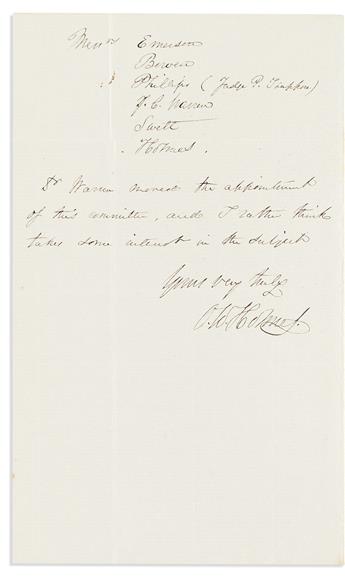 Messrs Emerson
Bowen
Phillips (Judge P.
J. C. Warren
Swett
Holmes.
Dr Warren moved the appointment
of this committee, and I rather think
takes some interest in the subject
Yours very truly
O. W. Holmes.